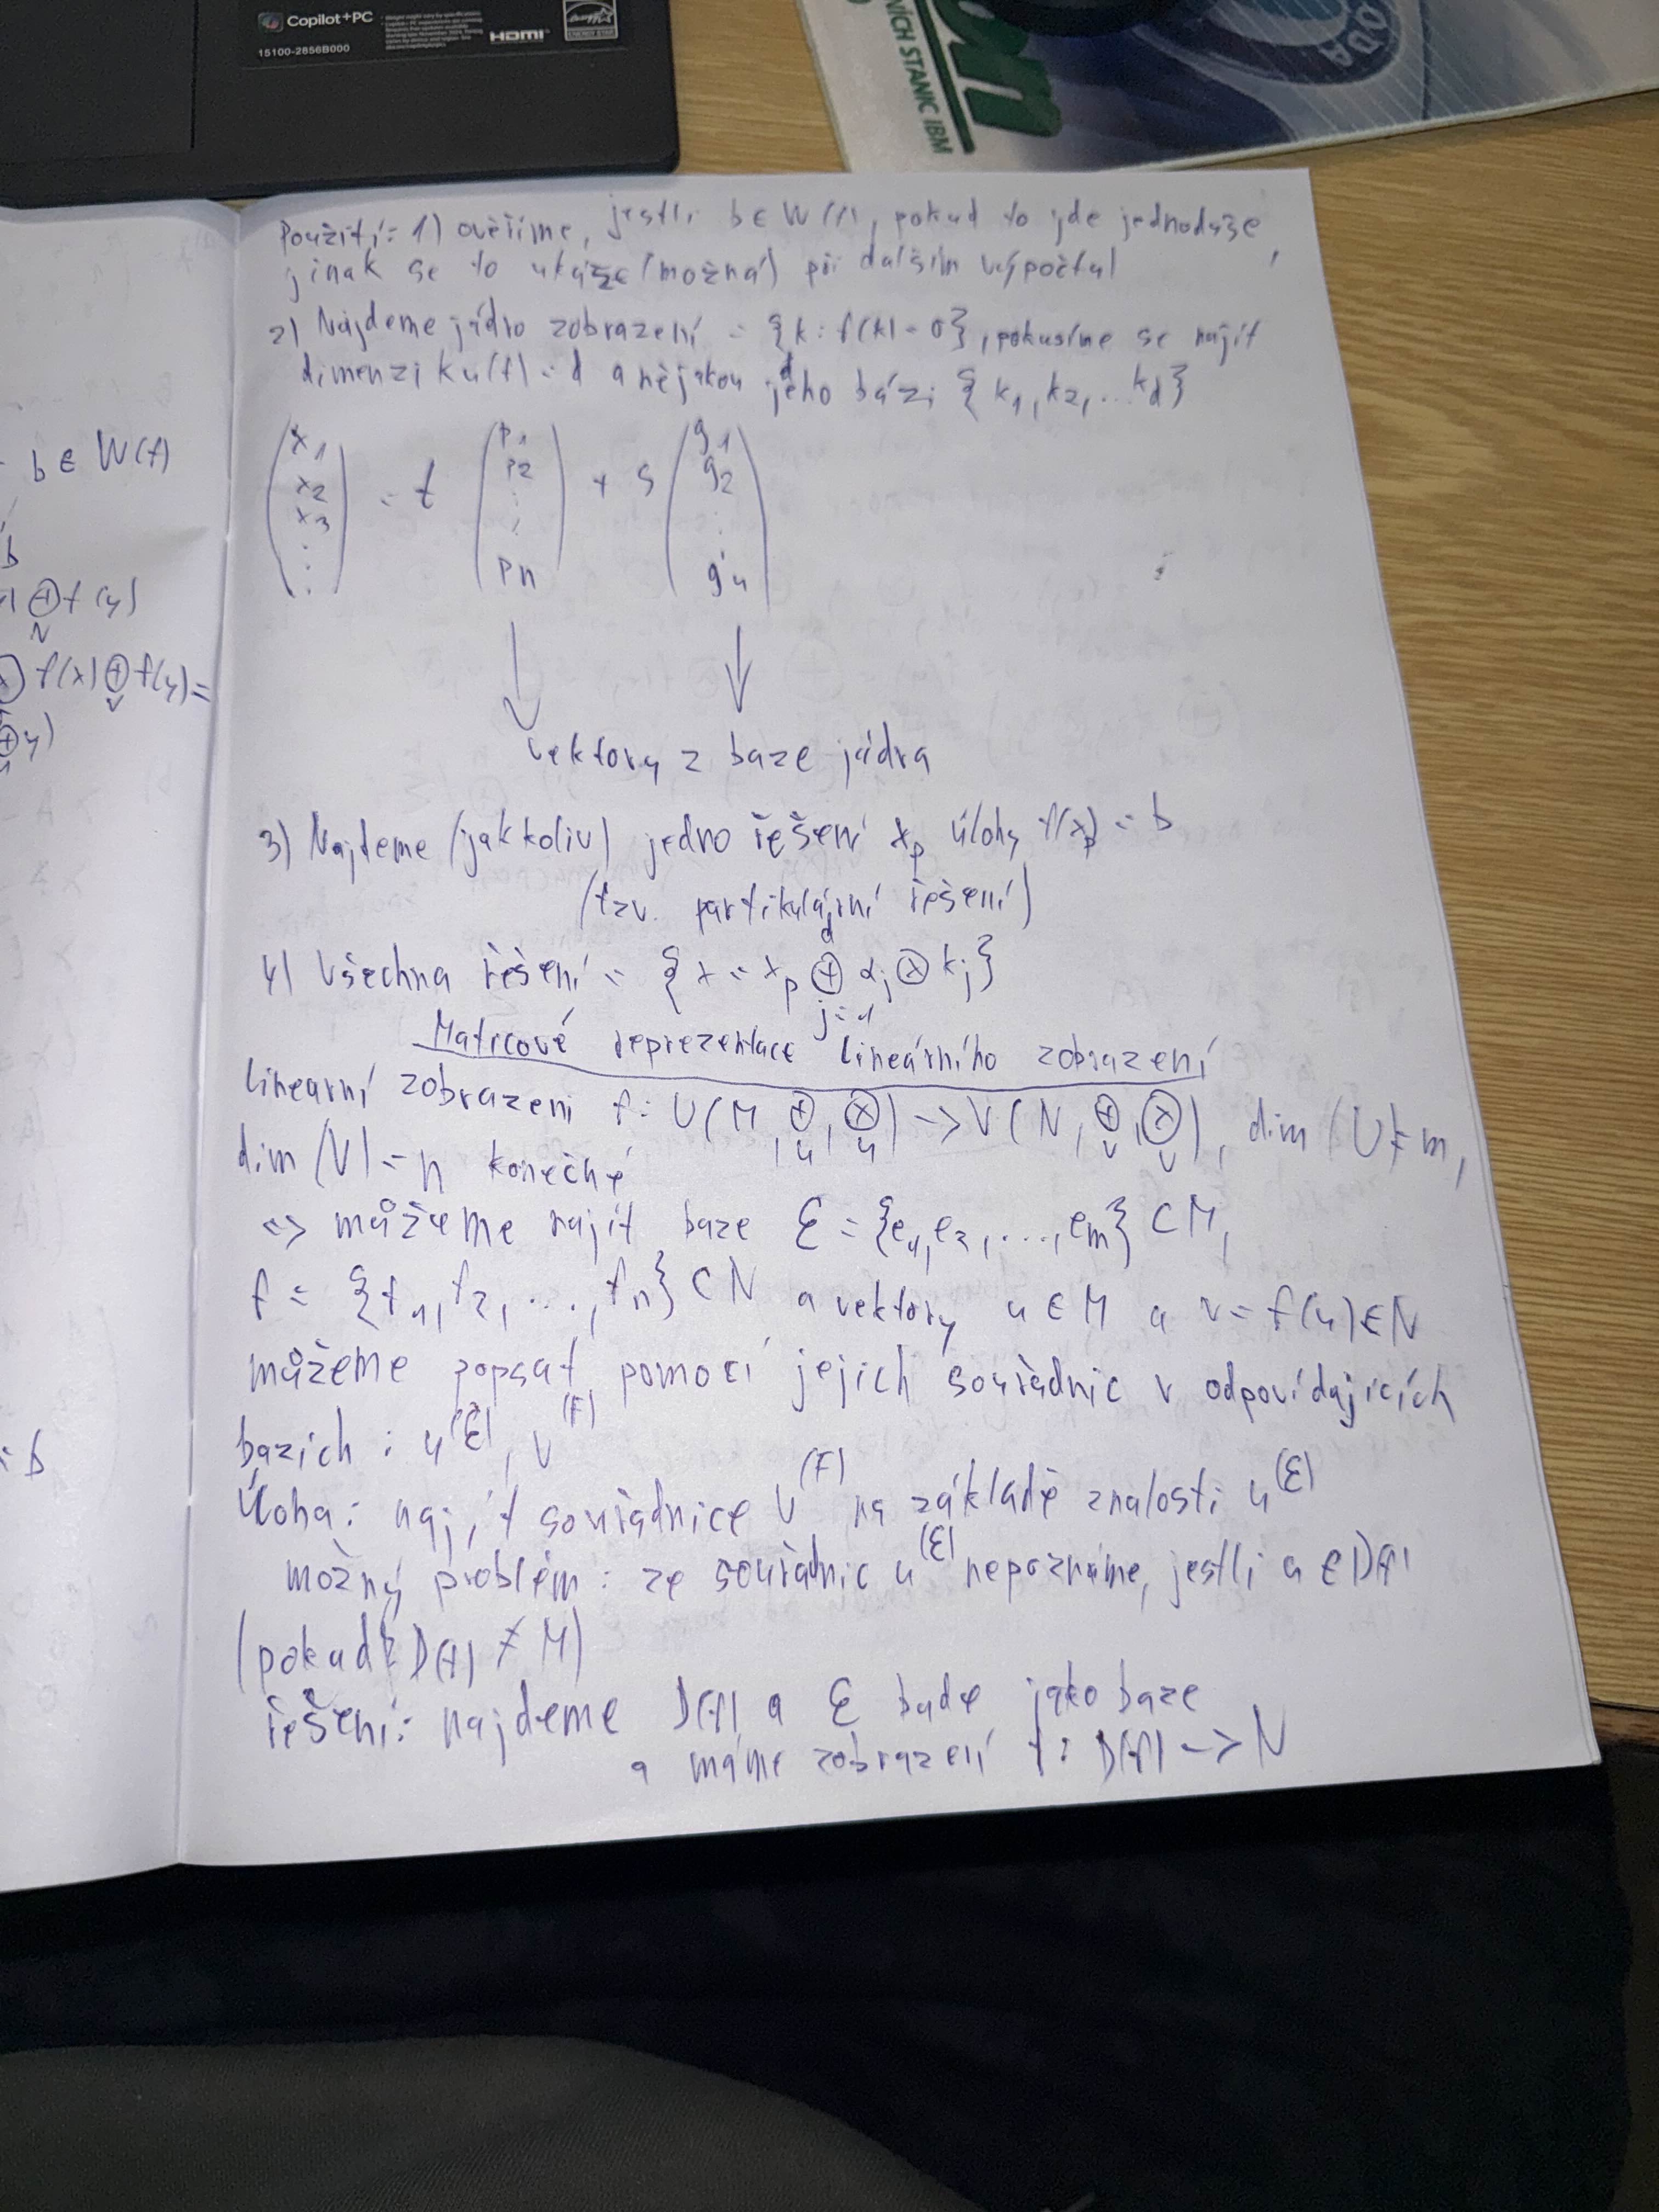 Copilot+PC
15100-2856B000
HDMI
ENERGY STAR
NÍCH STANIC IBM
ODA
b ∈ W(f)
b
⊕ f(y)
N
f(x) ⊕ f(y) =
v
⊕ y)
= b
Použití: 1) ověříme, jestli b ∈ W(f), pokud to jde jednoduše,
jinak se to ukáže (možná) při dalším výpočtu)
2) Najdeme jádro zobrazení = {k : f(k) = 0}, pokusíme se najít
dimenzi Ku(f) = d a nějakou jeho bázi {k₁, k₂, ... k_d}
(x₁ x₂ x₃ ⋮) = t (p₁ p₂ ⋮ pn) + s (g₁ g₂ ⋮ gn)
↓ ↓
vektory z baze jádra
3) Najdeme (jakkoliv) jedno řešení x_p úlohy f(x_p) = b
(tzv. partikulární řešení)
4) Všechna řešení = {x = x_p ⊕_{j=1}^{d} α_j ⊗ k_j}
Maticové reprezentace lineárního zobrazení
Linearní zobrazeni f: U(M, ⊕_u, ⊗_u) -> V(N, ⊕_v, ⊗_v), dim (U) = m,
dim (V) = n konečné
=> můžeme najít baze ℰ = {e₁, e₂, ..., e_m} ⊂ M,
f = {f₁, f₂, ..., f_n} ⊂ N a vektory u ∈ M a v = f(u) ∈ N
můžeme popsat pomocí jejich souřadnic v odpovídajících
bazích : u^(ℰ), v^(F)
Úloha: najít souřadnice v^(F) na základě znalosti u^(ℰ)
možný problém: ze souřadnic u^(ℰ) nepoznáme, jestli u ∈ D(f)
(pokud D(f) ≠ M)
řešení: najdeme D(f) a ℰ bude jako baze
a máme zobrazení f: D(f) -> N